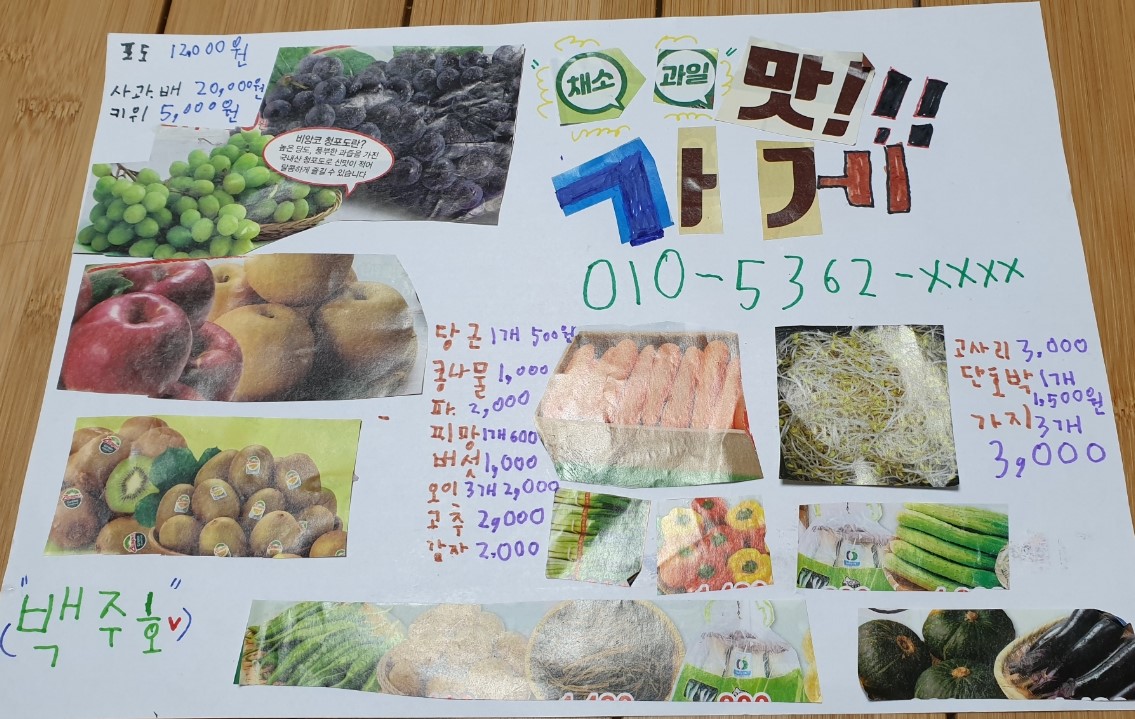 포도 12,000원
사과,배 20,000원
키위 5,000원
비앙코 청포도란?
높은 당도, 풍부한 과즙을 가진
국내산 청포도로 신맛이 적어
달콤하게 즐길 수 있습니다
"채소 과일" 맛!!!
가게
010-5362-xxxx
당근 1개 500원
콩나물 1,000
파 2,000
피망 1개 600
버섯 1,000
오이 3개 2,000
고추 2,000
감자 2,000
고사리 3,000
단호박 1개
1,500원
가지 3개
3,000
("백주호"v)